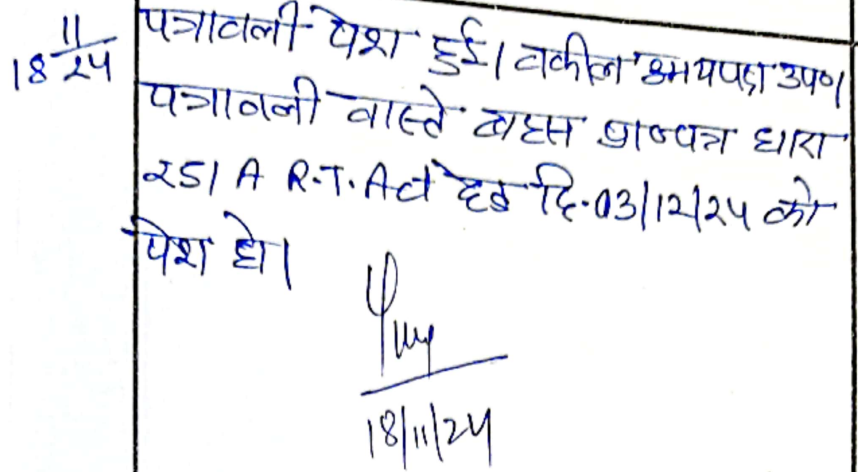 18 11/24
पत्रावली पेश हुई। वकील उभयपक्ष उप०।
पत्रावली वास्ते बहस प्रा०पत्र धारा
251 A R.T. Act हेतु दि. 03/12/24 को
पेश हो।
18/11/24